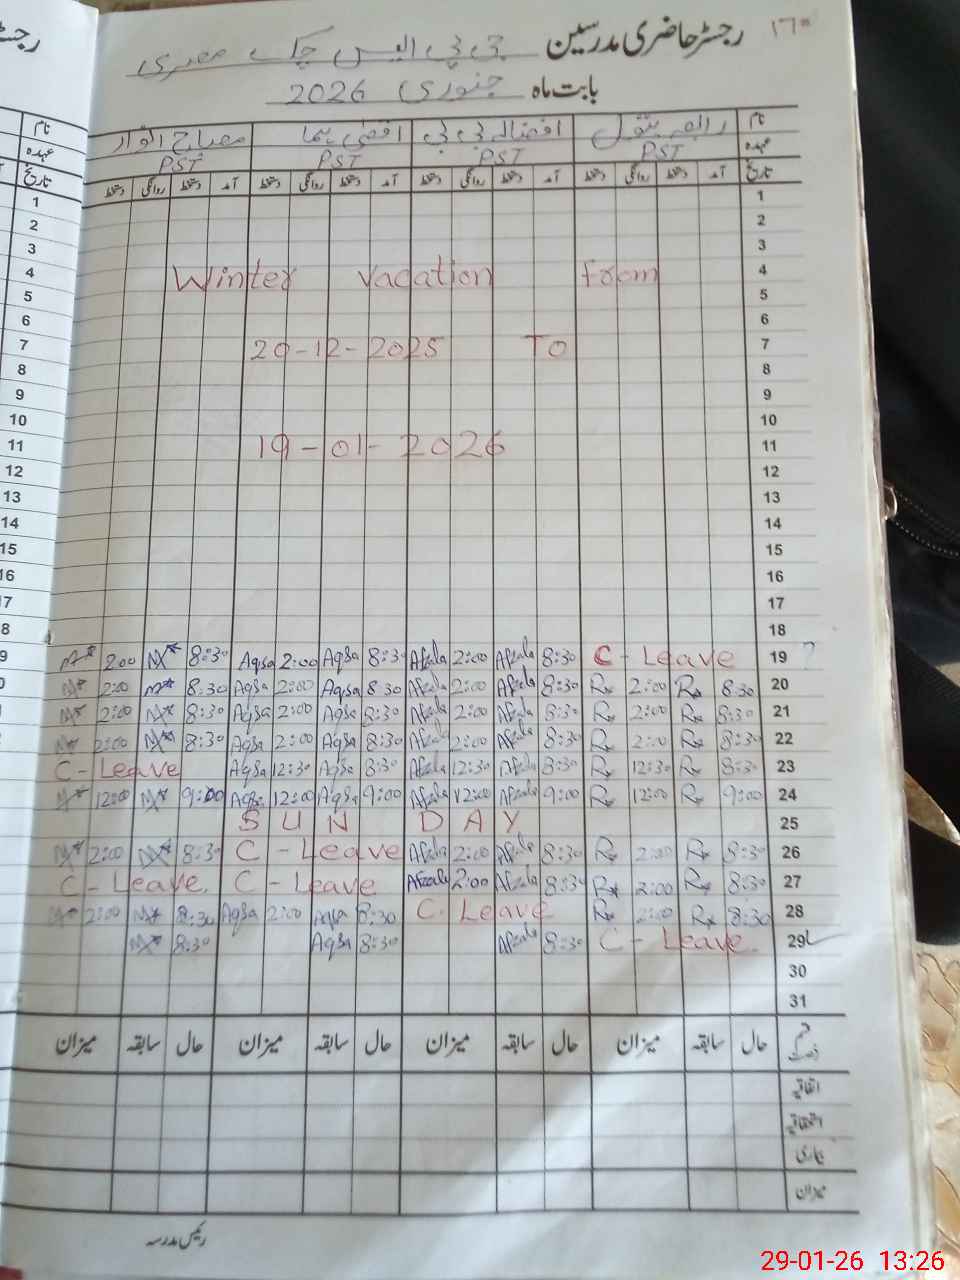 رجسٹر حاضری مدرسین جی پی ایس چک مصری
بابت ماہ جنوری 2026
نام رابعہ بتول افضالہ بی بی اقصٰی ہما مصباح انوار
عہدہ PST PST PST PST
تاریخ آمد دستخط روانگی دستخط آمد دستخط روانگی دستخط آمد دستخط روانگی دستخط آمد دستخط روانگی دستخط
1
2
3
4 Winter Vacation From
5
6
7 20-12-2025 To
8
9
10
11 19-01-2026
12
13
14
15
16
17
18
2:00 8:30 Aqsa 2:00 Aqsa 8:30 Afzala 2:00 Afzala 8:30 C-Leave 19 ?
2:00 8:30 Aqsa 2:00 Aqsa 8:30 Afzala 2:00 Afzala 8:30 2:00 8:30 20
2:00 8:30 Aqsa 2:00 Aqsa 8:30 Afzala 2:00 Afzala 8:30 2:00 8:30 21
2:00 8:30 Aqsa 2:00 Aqsa 8:30 Afzala 2:00 Afzala 8:30 2:00 8:30 22
C-Leave Aqsa 12:30 Aqsa 8:30 Afzala 12:30 Afzala 8:30 12:30 8:30 23
12:00 9:00 Aqsa 12:00 Aqsa 9:00 Afzala 12:00 Afzala 9:00 12:00 9:00 24
SUN DAY 25
2:00 8:30 C-Leave Afzala 2:00 Afzala 8:30 2:00 8:30 26
C-Leave. C-Leave Afzala 2:00 Afzala 8:30 2:00 8:30 27
2:00 8:30 Aqsa 2:00 Aqsa 8:30 C. Leave 2:00 8:30 28
8:30 Aqsa 8:30 Afzala 8:30 C-Leave. 29
30
31
قسم رخصت حال سابقہ میزان حال سابقہ میزان حال سابقہ میزان حال سابقہ میزان
اتفاقیہ
استحقاقیہ
بیماری
میزان
رئیس مدرسہ
29-01-26 13:26